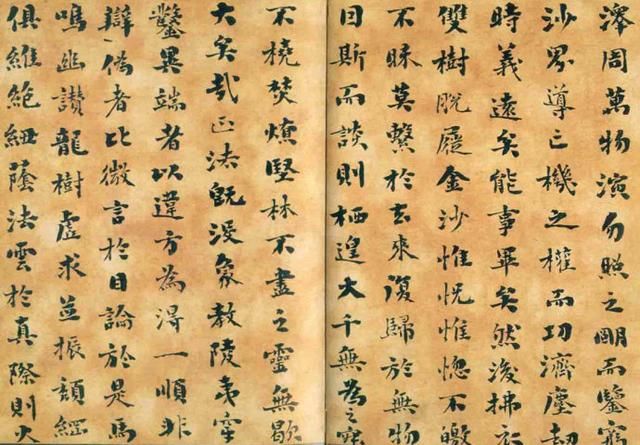 澤周萬物演勿照之明而鑒窮
沙界導亡機之權而功濟塵劫
時義遠矣能事畢矣然後拂衣
雙樹脫屣金沙惟恍惟惚不皦
不昧莫繫於去來復歸於無物
因斯而談則栖遑大千無為之寂
不撓焚燎堅林不盡之靈無歇
大矣哉正法既沒象教陵夷穿
鑿異端者以違方為得一順非
辯偽者比微言於目論於是馬
鳴幽讃龍樹虛求並振頹綱
俱維絕紐蔭法雲於真際則火